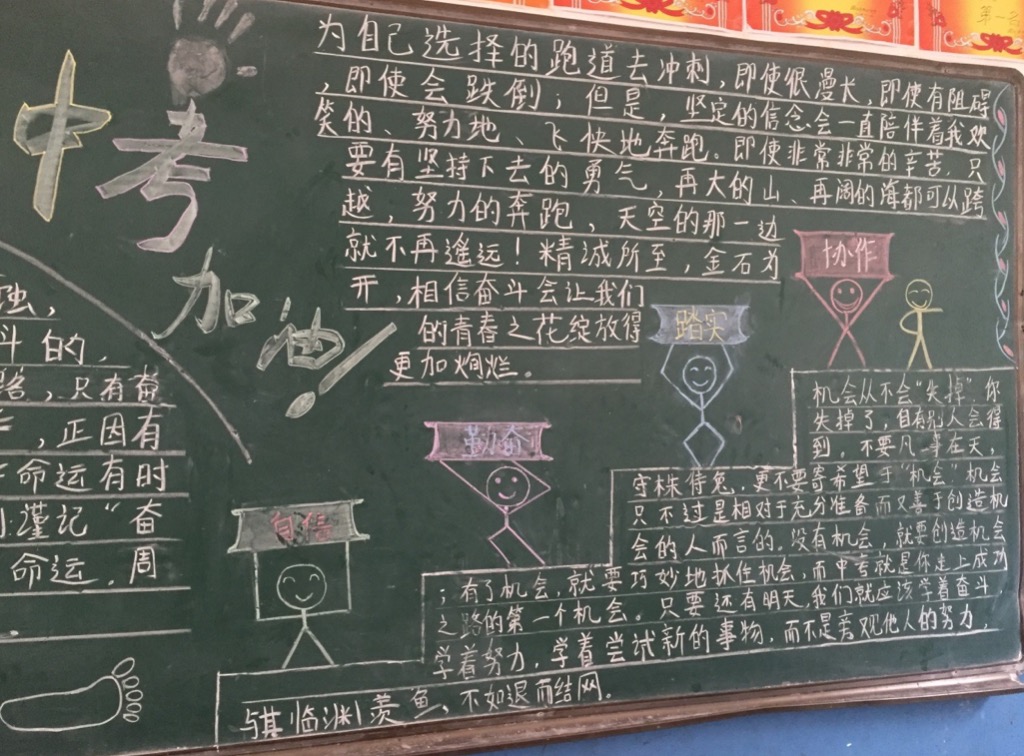 第一名
中考
加油！
为自己选择的跑道去冲刺，即使很漫长，即使有阻碍
，即使会跌倒；但是，坚定的信念会一直陪伴着我欢
笑的、努力地、飞快地奔跑。即使非常非常的辛苦，只
要有坚持下去的勇气，再大的山、再阔的海都可以跨
越，努力的奔跑，天空的那一边
就不再遥远！精诚所至，金石为
开，相信奋斗会让我们
的青春之花绽放得
更加炯烂。
虫，
斗的，
路，只有奋
，正因有
命运有时
谨记“奋
命运，周
协作
踏实
勤奋
自信
机会从不会“失掉”你
失掉了，自有别人会得
到，不要凡事在天，
守株待兔，更不要寄希望于“机会”机会
只不过是相对于充分准备而又善于创造机
会的人而言的。没有机会，就要创造机会
；有了机会，就要巧妙地抓住机会，而中考就是你走上成功
之路的第一个机会。只要还有明天，我们就应该学着奋斗
学着努力，学着尝试新的事物，而不是羡观他人的努力，
与其临渊羡鱼，不如退而结网。